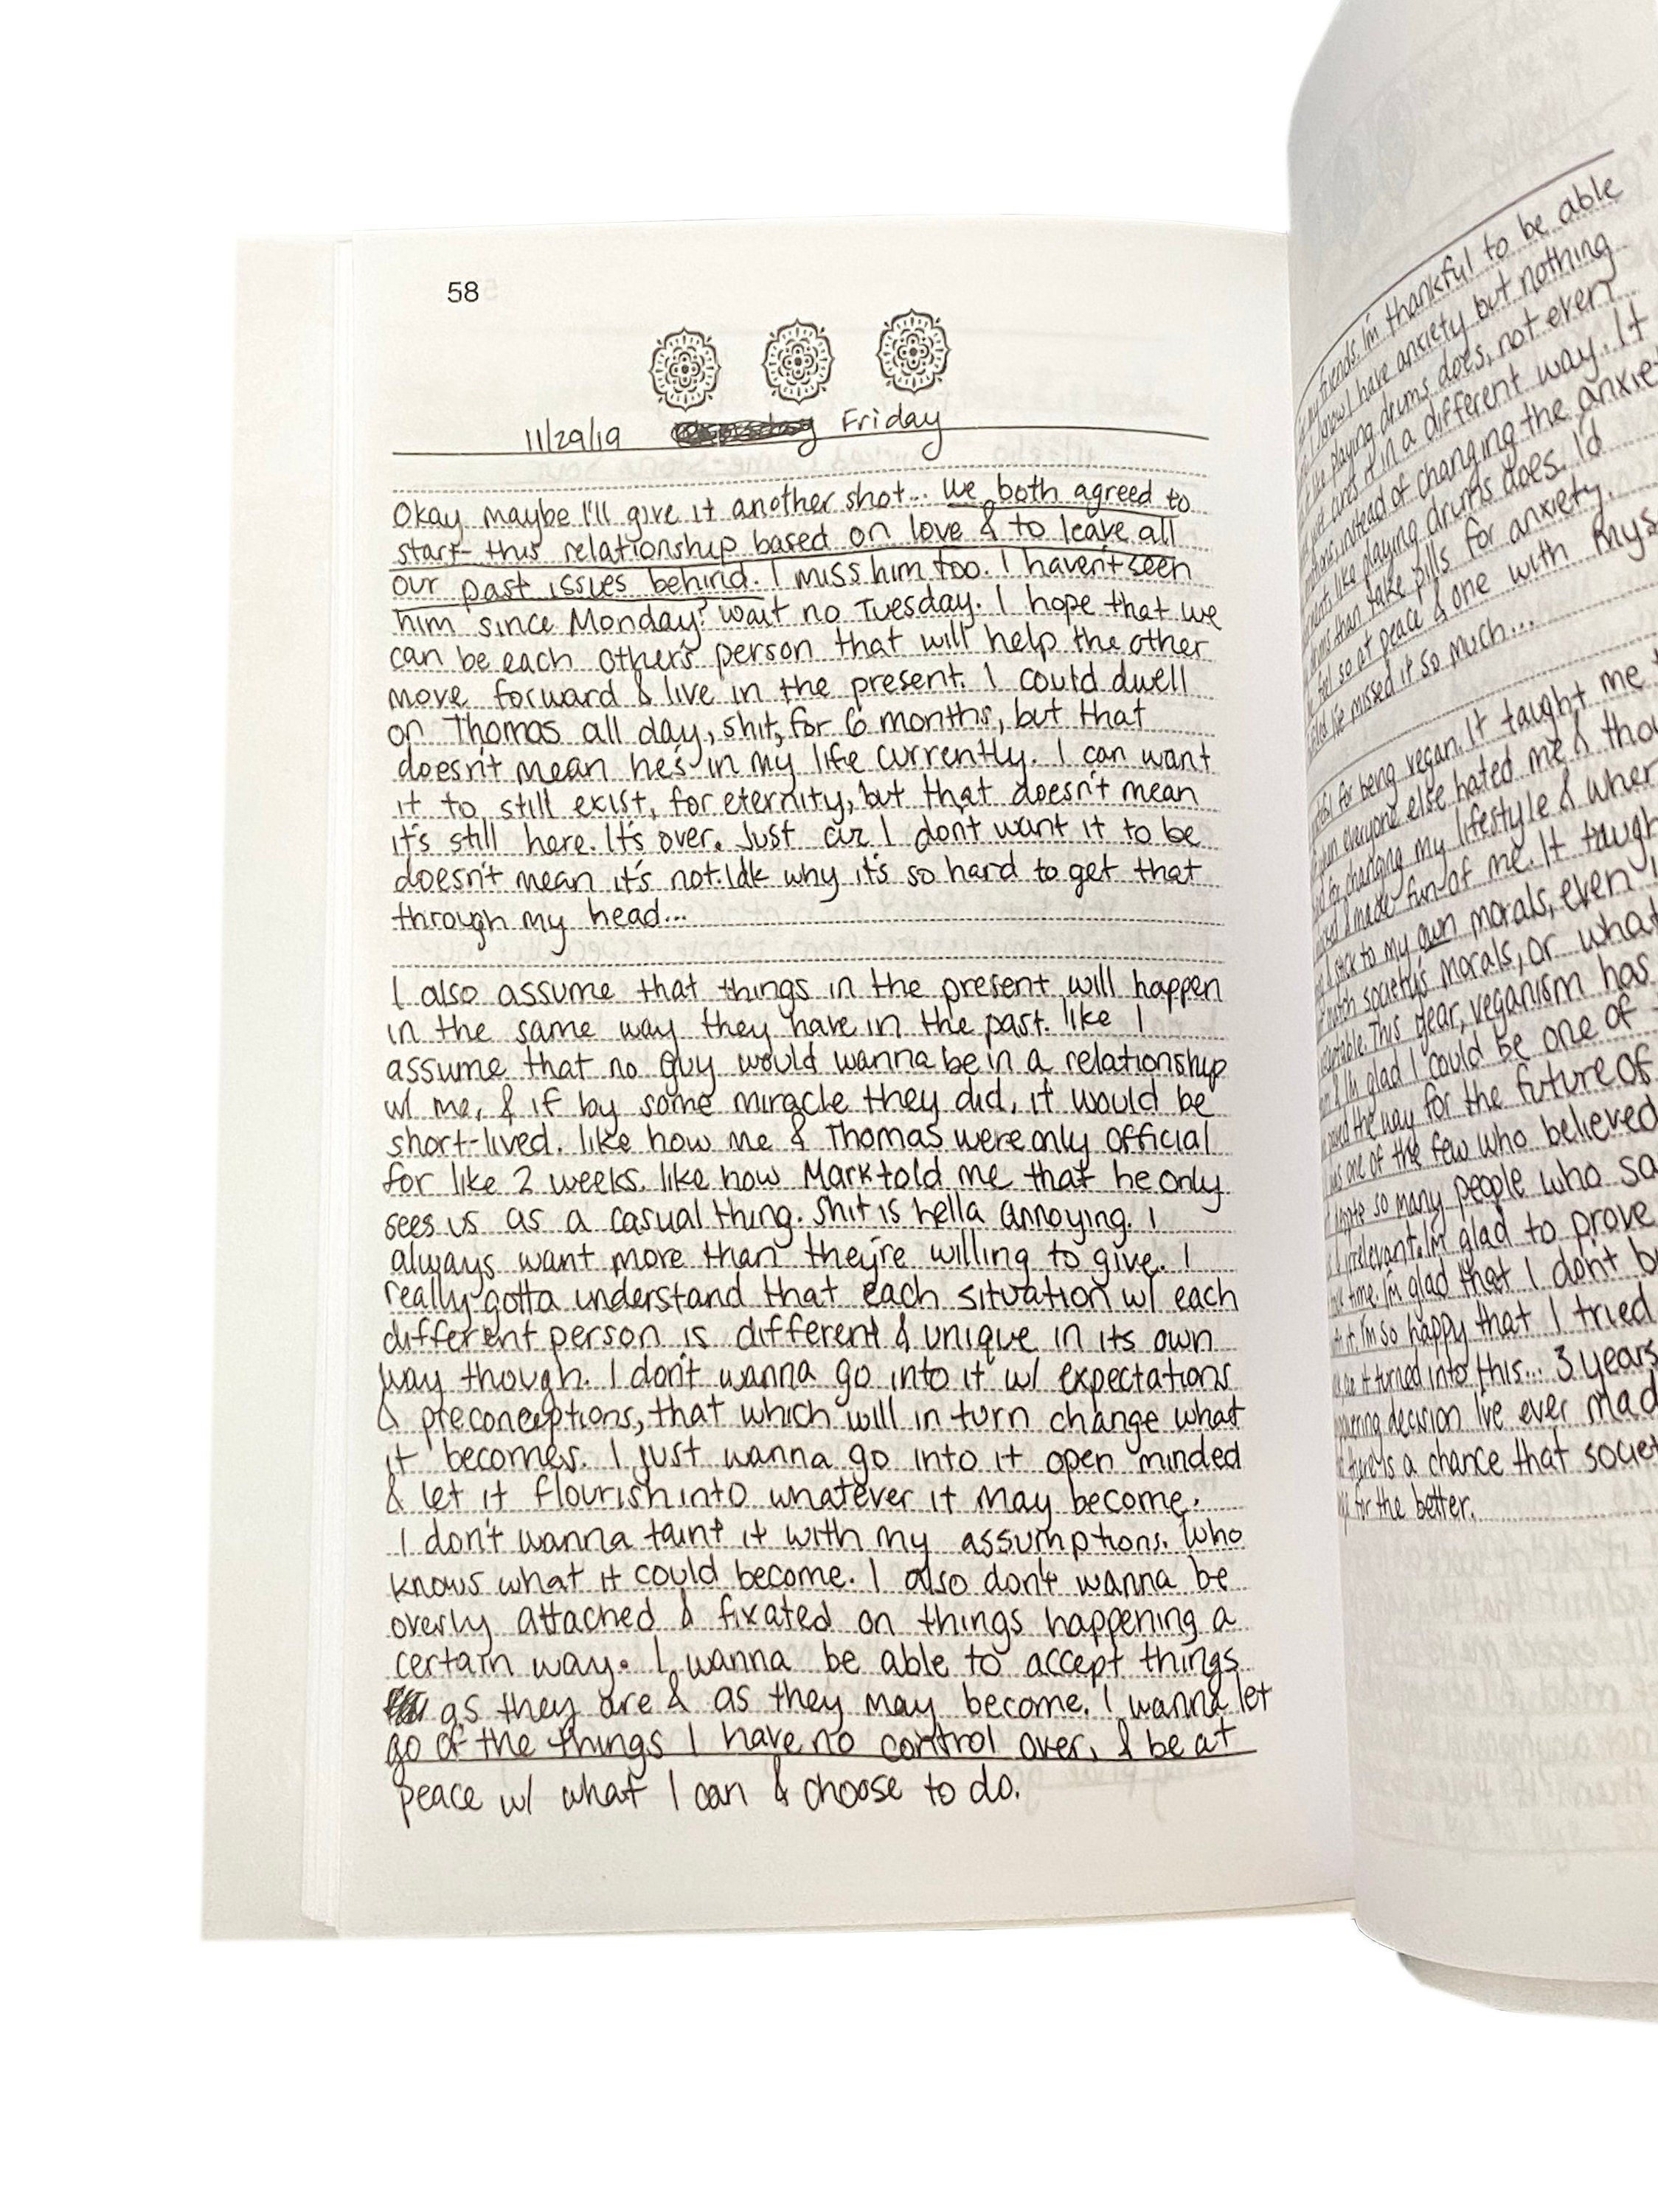 58
11/29/19 Friday
Okay maybe I'll give it another shot... We both agreed to
start this relationship based on love & to leave all
our past issues behind. I miss him too. I haven't seen
him since Monday? wait no Tuesday. I hope that we
can be each other's person that will help the other
move forward & live in the present. I could dwell
on Thomas all day, shit, for 6 months, but that
doesn't mean he's in my life currently. I can want
it to still exist, for eternity, but that doesn't mean
it's still here. It's over. Just cuz I don't want it to be
doesn't mean it's not. Idk why it's so hard to get that
through my head...
I also assume that things in the present will happen
in the same way they have in the past. like I
assume that no guy would wanna be in a relationship
w/ me, & if by some miracle they did, it would be
short-lived. like how me & Thomas were only official
for like 2 weeks. like how Mark told me that he only
sees us as a casual thing. Shit is hella annoying. I
always want more than they're willing to give. I
really gotta understand that each situation w/ each
different person is different & unique in its own
way though. I don't wanna go into it w/ expectations
& preconceptions, that which will in turn change what
it becomes. I just wanna go into it open minded
& let it flourish into whatever it may become.
I don't wanna taint it with my assumptions. Who
knows what it could become. I also don't wanna be
overly attached & fixated on things happening a
certain way. I wanna be able to accept things
as they are & as they may become. I wanna let
go of the things I have no control over, & be at
peace w/ what I can & choose to do.
my friends. I'm thankful to be able
I know I have anxiety but nothing
like playing drums does, not even
cures it in a different way. It
instead of changing the
like playing drums does. I'd
than take pills for anxiety.
feel so at peace & one with
I've missed it so much...
for being vegan. It taught me
everyone else hated me &
for changing my lifestyle &
& made fun of me. It
& stick to my own morals, even
match society's morals, or what
This year, veganism has
& I'm glad I could be one of
paved the way for the future of
was one of the few who believed
so many people who
irrelevant. I'm glad to prove
time. I'm glad that I don't
it. I'm so happy that I tried
it turned into this... 3 years
decision I've ever
there is a chance that
for the better.